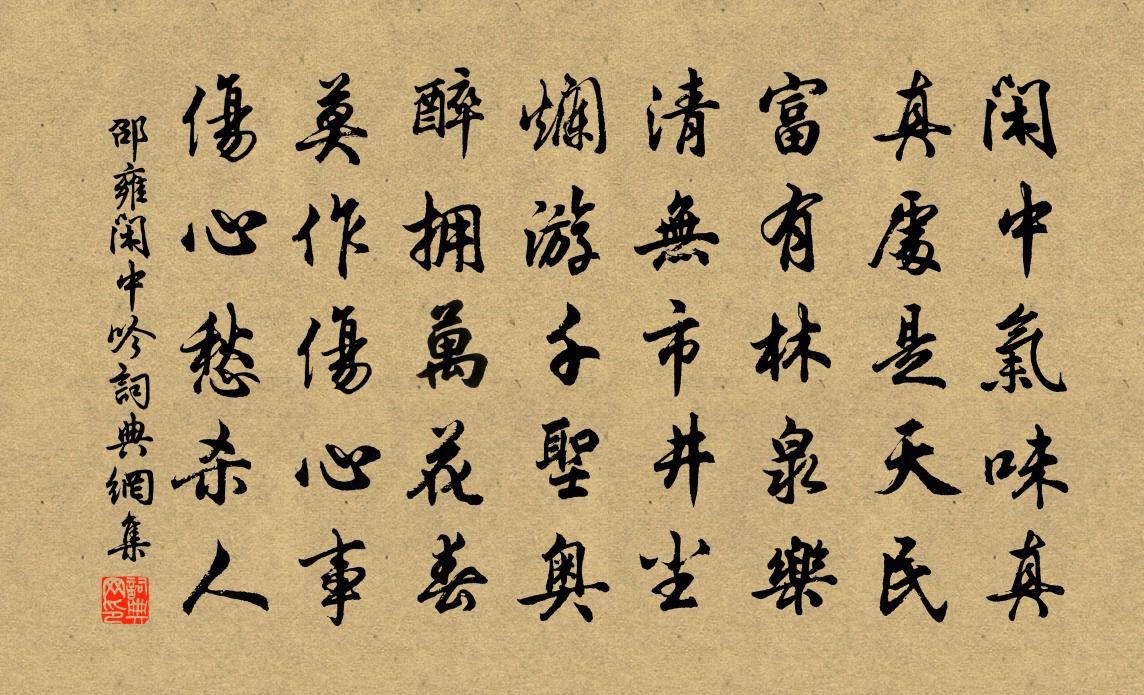 閑中氣味真
真處是天民
富有林泉樂
清無市井尘
爛游千聖奥
醉拥萬花春
莫作傷心事
傷心愁杀人
邵雍閑中吟詞典網集
詞典网印